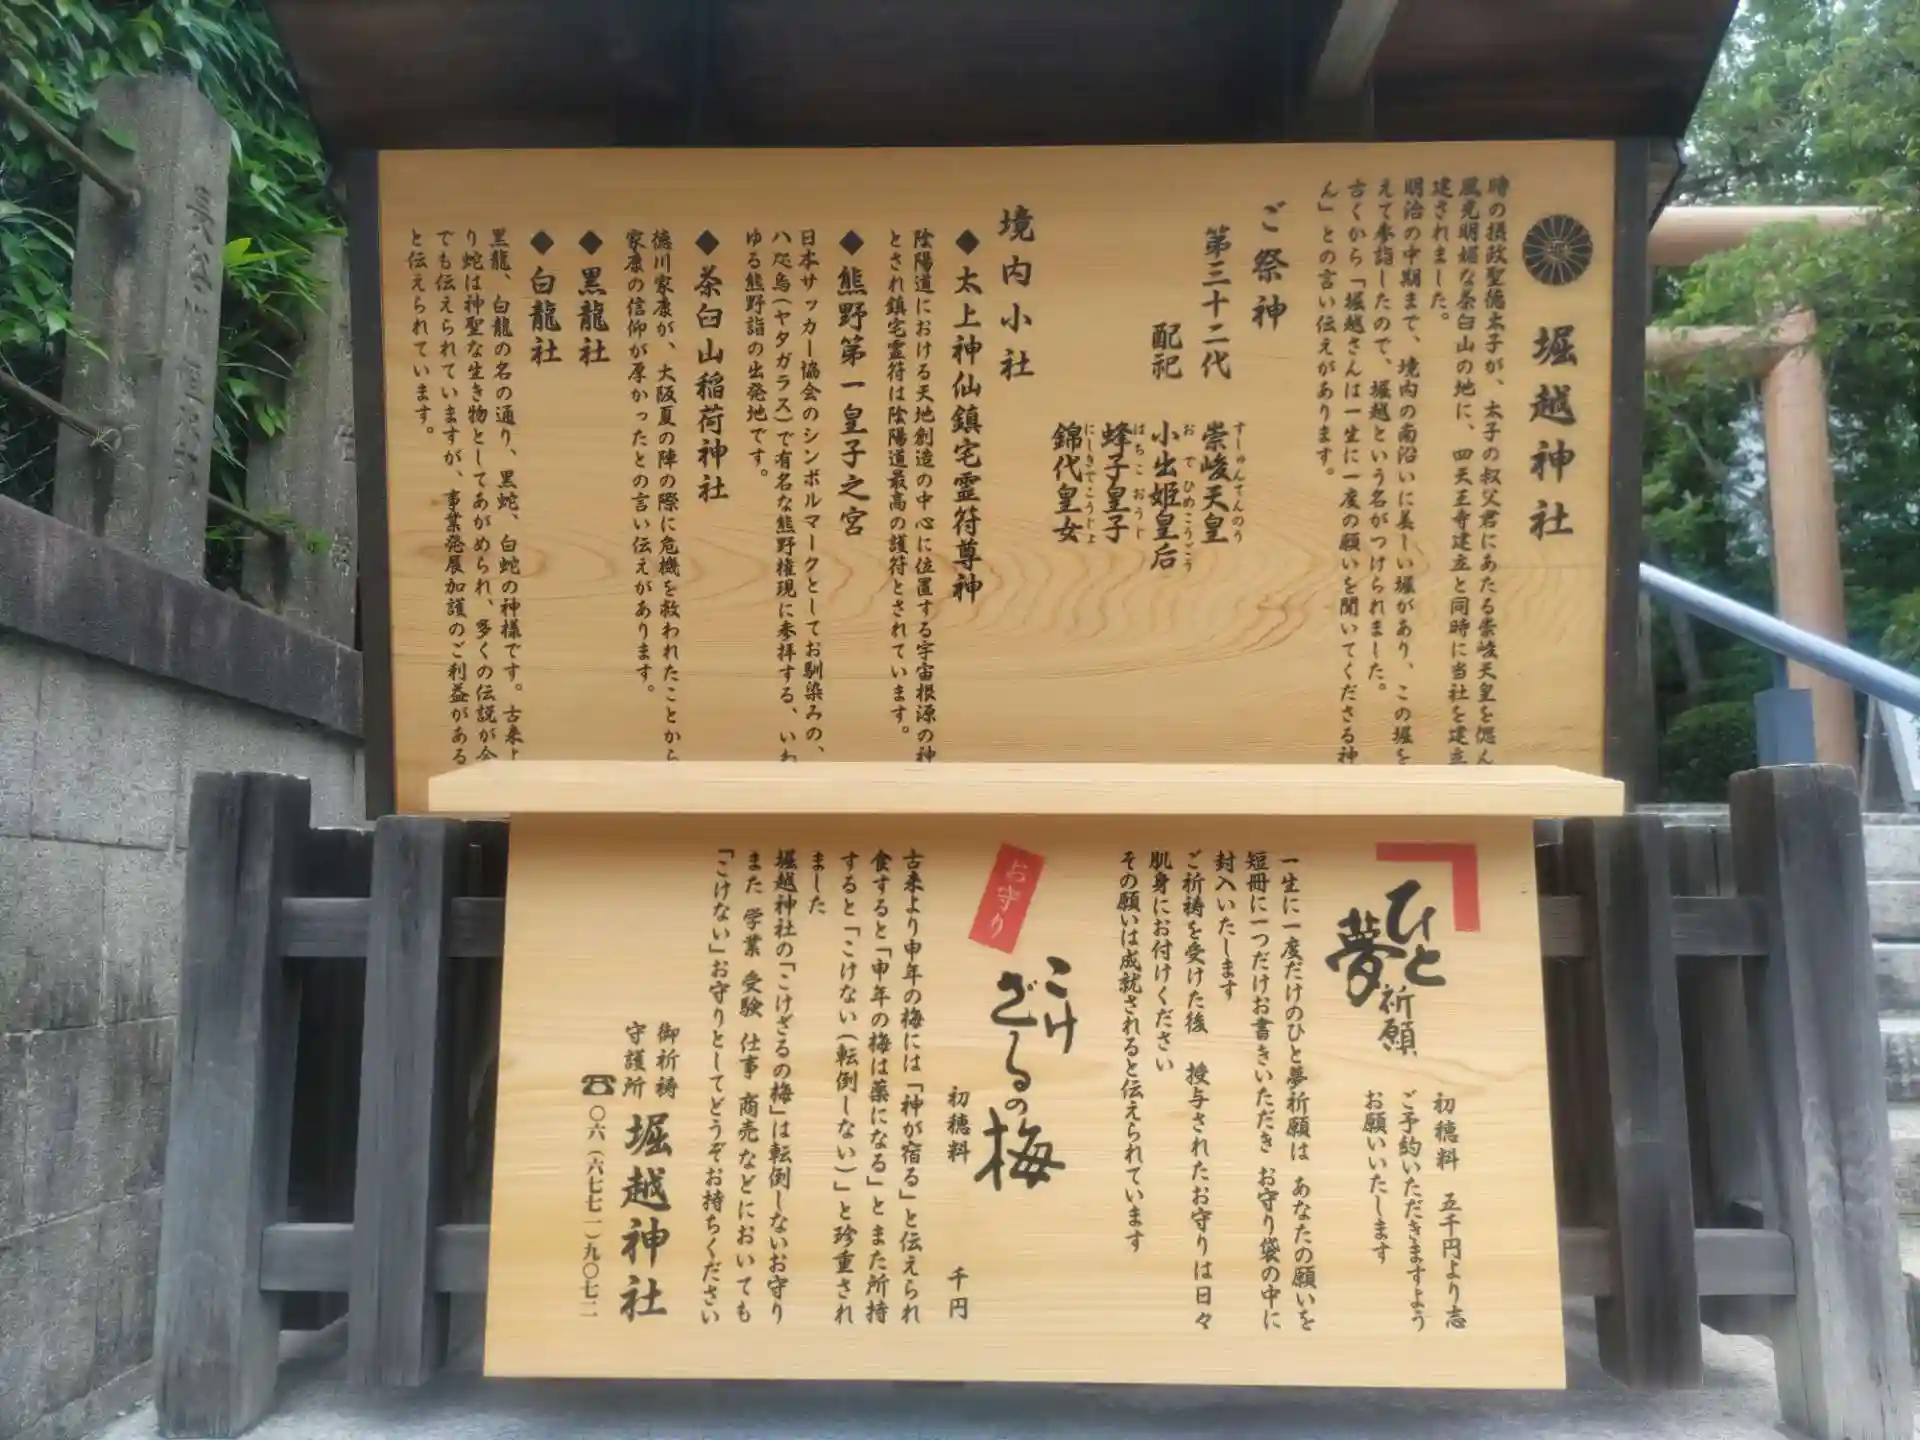 堀越神社
時の摂政聖徳太子が、太子の叔父君にあたる崇峻天皇を偲ん
風光明媚な茶臼山の地に、四天王寺建立と同時に当社を建立
建されました。
明治の中期まで、境内の南沿いに美しい堀があり、この堀を
えて参詣したので、堀越という名がつけられました。
古くから「堀越さんは一生に一度の願いを聞いてくださる神
ん」との言い伝えがあります。
ご祭神
第三十二代 崇峻天皇
すしゅんてんのう
配祀 小出姫皇后
おでひめこうごう
蜂子皇子
はちこおうじ
錦代皇女
にしきでこうじょ
境内小社
◆太上神仙鎮宅霊符尊神
陰陽道における天地創造の中心に位置する宇宙根源の神
とされ鎮宅霊符は陰陽道最高の護符とされています。
◆熊野第一皇子之宮
日本サッカー協会のシンボルマークとしてお馴染みの、
八咫烏(ヤタガラス)で有名な熊野権現に参拝する、いわ
ゆる熊野詣の出発地です。
◆茶臼山稲荷神社
徳川家康が、大阪夏の陣の際に危機を救われたことから
家康の信仰が厚かったとの言い伝えがあります。
◆黒龍社
◆白龍社
黒龍、白龍の名の通り、黒蛇、白蛇の神様です。古来よ
り蛇は神聖な生き物としてあがめられ、多くの伝説が今
でも伝えられていますが、事業発展加護のご利益がある
と伝えられています。
ひと夢祈願
初穂料 五千円より志
ご予約いただきますよう
お願いいたします
一生に一度だけのひと夢祈願は あなたの願いを
短冊に一つだけお書きいただき お守り袋の中に
封入いたします
ご祈祷を受けた後 授与されたお守りは日々
肌身にお付けください
その願いは成就されると伝えられています
お守り
こけざるの梅
初穂料 千円
古来より申年の梅には「神が宿る」と伝えられ
食すると「申年の梅は薬になる」とまた所持
すると「こけない(転倒しない)」と珍重され
ました
堀越神社の「こけざるの梅」は転倒しないお守り
また 学業 受験 仕事 商売などにおいても
「こけない」お守りとしてどうぞお持ちください
御祈祷
守護所
堀越神社
☎〇六(六七七一)九〇七二